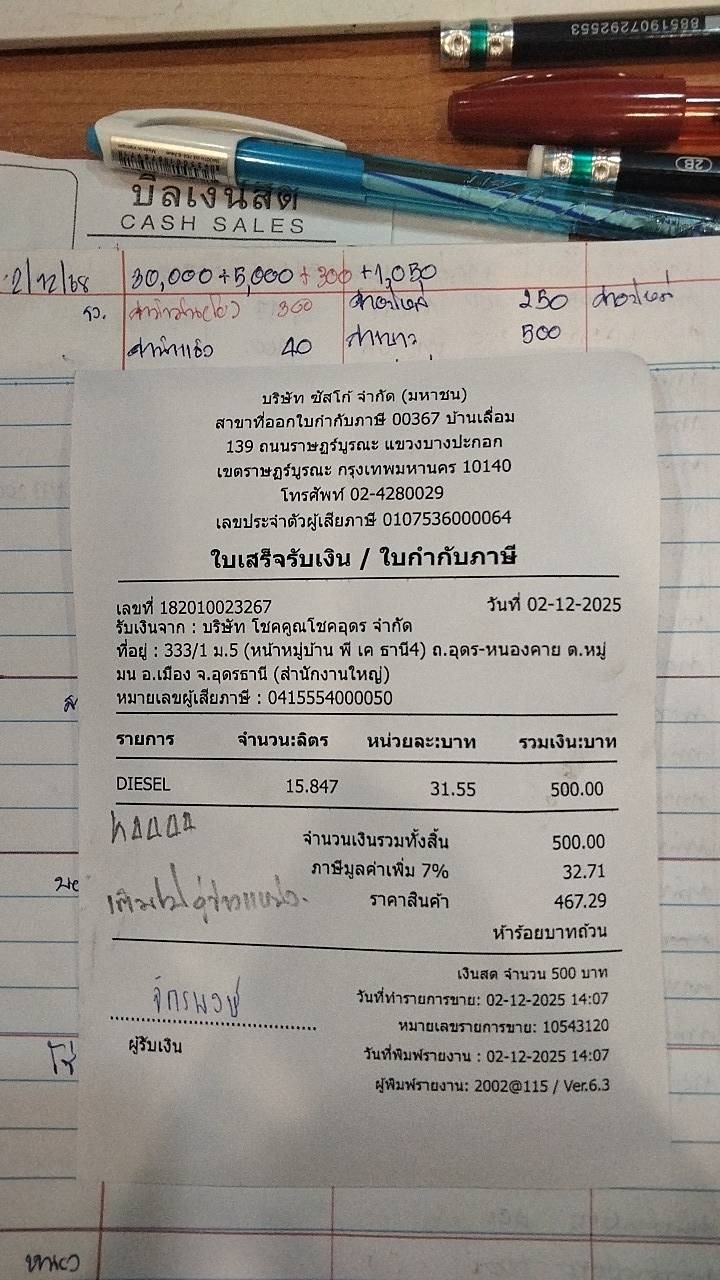 8851907292553
2B
บิลเงินสด
CASH SALES
2/12/68 30,000+5,000+300+1,050
รว. 300 250
ค่าน้ำแข็ง 40 500
บริษัท ซัสโก้ จำกัด (มหาชน)
สาขาที่ออกใบกำกับภาษี 00367 บ้านเลื่อม
139 ถนนราษฎร์บูรณะ แขวงบางปะกอก
เขตราษฎร์บูรณะ กรุงเทพมหานคร 10140
โทรศัพท์ 02-4280029
เลขประจำตัวผู้เสียภาษี 0107536000064
ใบเสร็จรับเงิน / ใบกำกับภาษี
เลขที่ 182010023267 วันที่ 02-12-2025
รับเงินจาก : บริษัท โชคคูณโชคอุดร จำกัด
ที่อยู่ : 333/1 ม.5 (หน้าหมู่บ้าน พี เค ธานี4) ถ.อุดร-หนองคาย ต.หมู่
มน อ.เมือง จ.อุดรธานี (สำนักงานใหญ่)
หมายเลขผู้เสียภาษี : 0415554000050
รายการ จำนวน:ลิตร หน่วยละ:บาท รวมเงิน:บาท
DIESEL 15.847 31.55 500.00
จำนวนเงินรวมทั้งสิ้น 500.00
ภาษีมูลค่าเพิ่ม 7% 32.71
ราคาสินค้า 467.29
ห้าร้อยบาทถ้วน
เงินสด จำนวน 500 บาท
จักรพงษ์
วันที่ทำรายการขาย: 02-12-2025 14:07
หมายเลขรายการขาย: 10543120
ผู้รับเงิน
วันที่พิมพ์รายงาน : 02-12-2025 14:07
ผู้พิมพ์รายงาน: 2002@115 / Ver.6.3